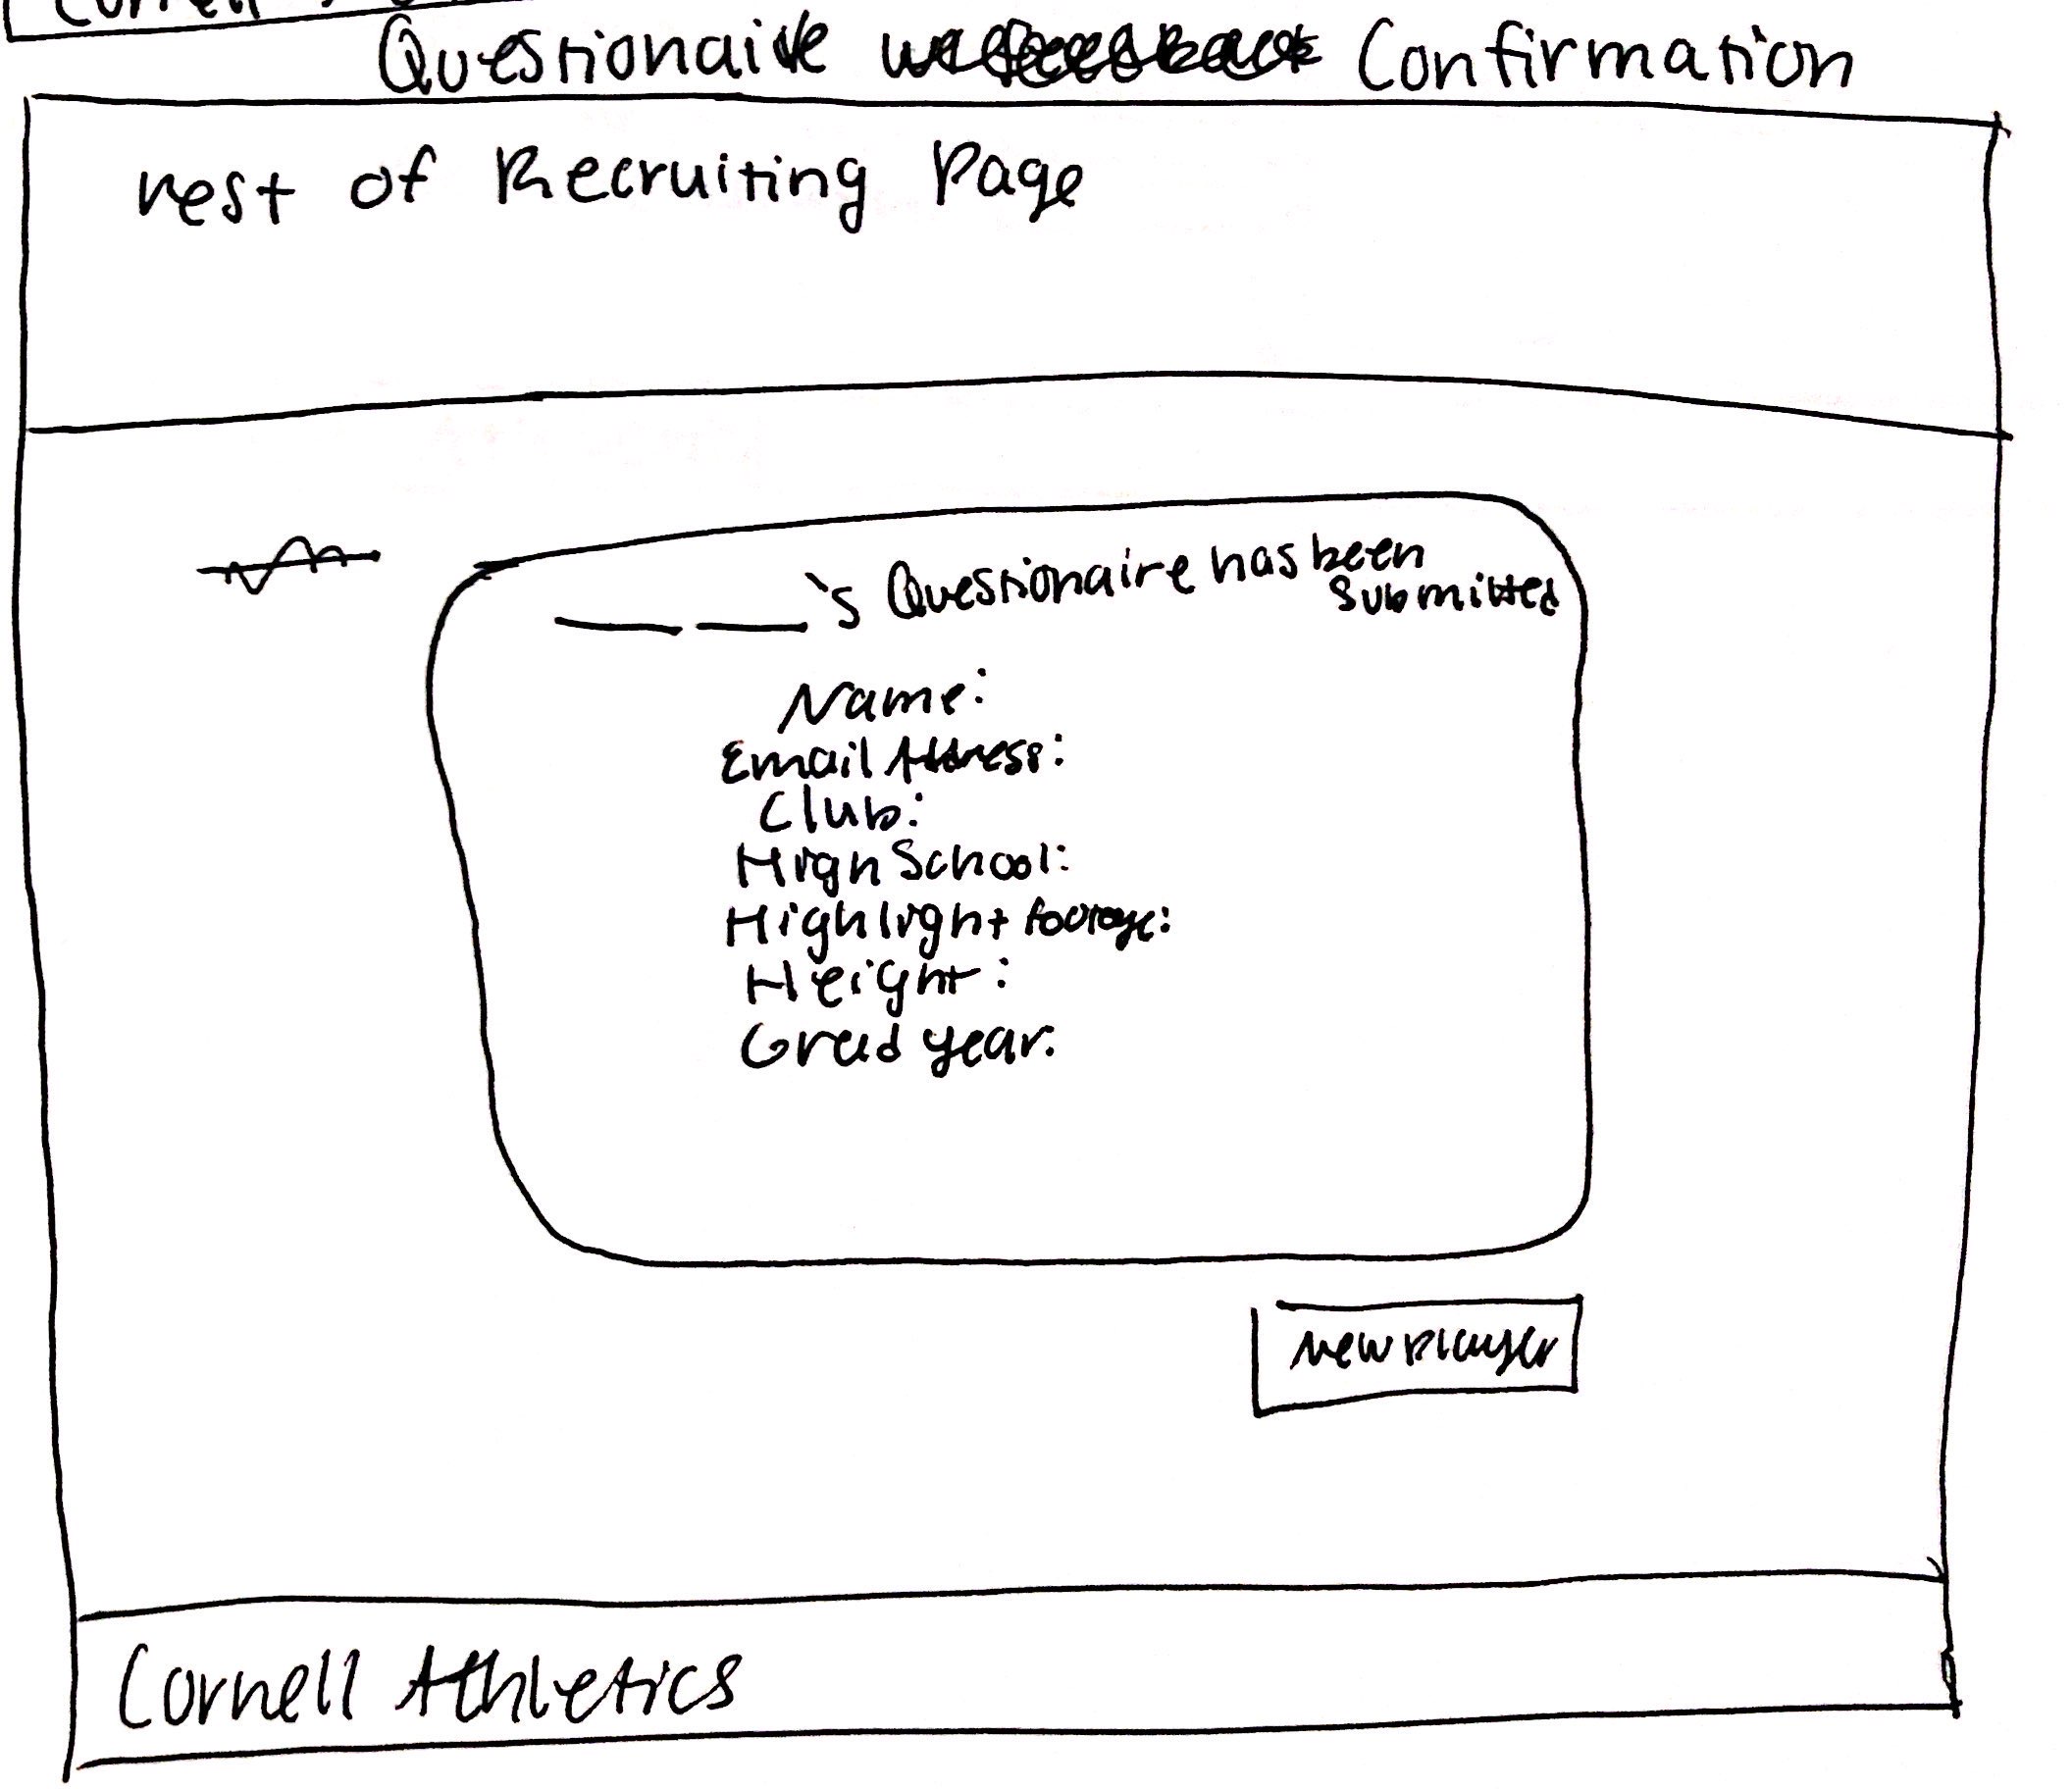 Cornell
Questionaire Confirmation
rest of Recruiting Page
's Questionaire has been
Submitted
Name:
Email Address:
Club:
High School:
Highlight footage:
Height:
Grad year:
New Player
Cornell Athletics